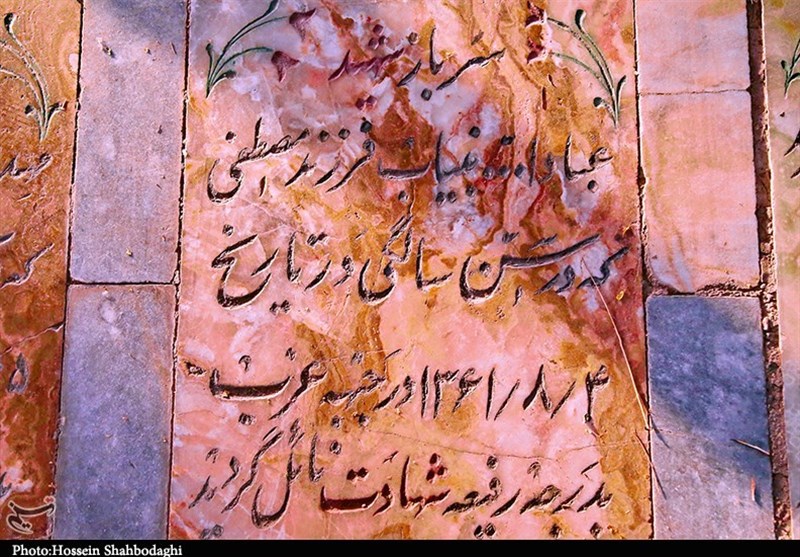 سرباز شهید
عبادا... فرزند مصطفی
که در سن سالگی در تاریخ
۱۳۶۱/۸/۴ در جبهه غرب
بدرجه رفیعه شهادت نائل گردید
Photo:Hossein Shahbodaghi